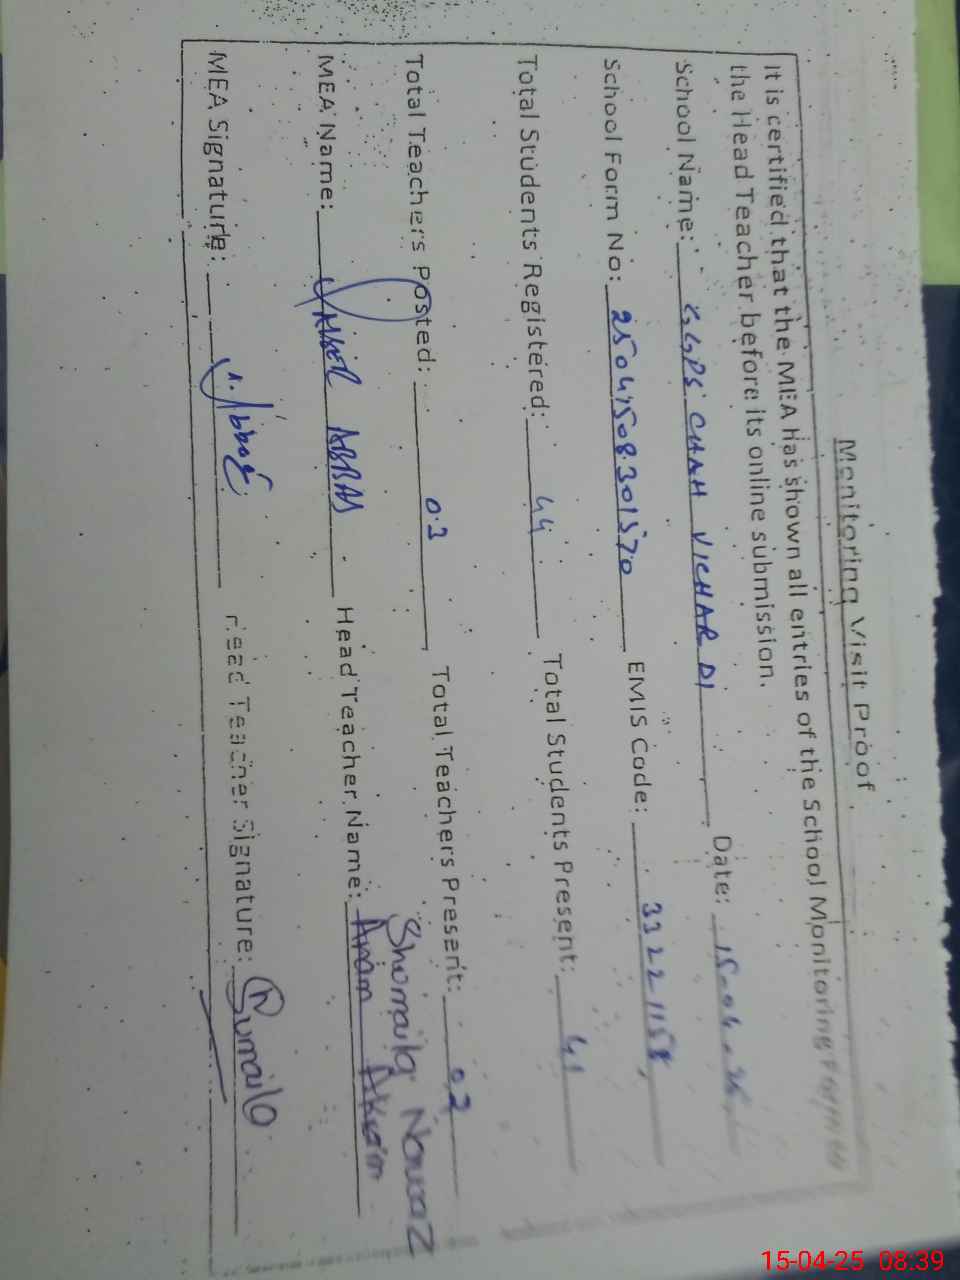 Monitoring Visit Proof
It is certified that the MEA has shown all entries of the School Monitoring
the Head Teacher before its online submission.
School Name: GGPS CHAH VICHAR DI Date: 15-04-25
School Form No: 25041508301570 EMIS Code: 33221158
Total Students Registered: 44 Total Students Present: 41
Total Teachers Posted: 03 Total Teachers Present: 02
Shumaila Nawaz
MEA Name: ABBAS Head Teacher Name: Anam Akram
MEA Signature: Head Teacher Signature:
15-04-25 08:39